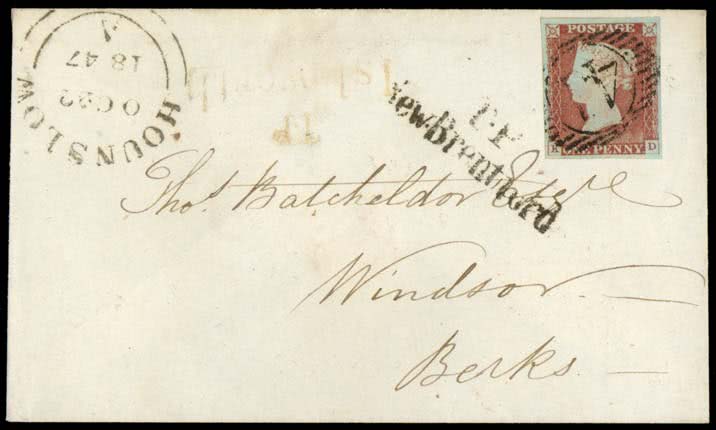 HOUNSLOW
OC 22
1847
A
Isleworth
1d
T.P
New Brentford
POSTAGE
ONE PENNY
K D
Thos. Batcheldor Esqre
Windsor
Berks.